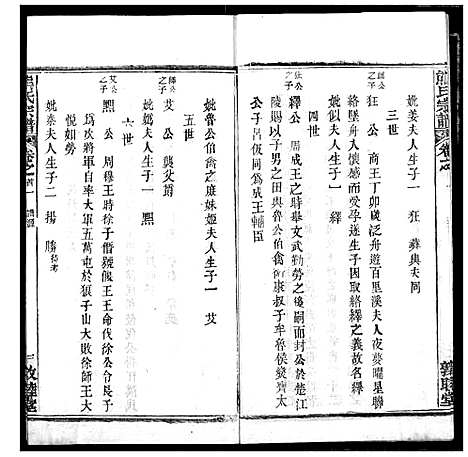 熊氏宗譜 卷之首
妣姜夫人生子一 狂 蘇與夫同
三世
狂公 商王丁卯歲泛舟遊百里溪夫人夜夢曜星聯
絡墜舟入懷感而受孕遂生子因取絡繹之義故名繹
妣似夫人生子一 繹
四世
繹公 周成王之時舉文武勤勞之後嗣而封公於楚江
陵賜以子男之田與魯公伯禽衛康叔子牟魯侯燮齊太
公子呂伋同為成王輔臣
敦睦堂
妣魯公伯禽之庶妹姬夫人生子一 艾
五世
繹公之子
艾公 襲父爵
妣嬀夫人生子一 䵣
六世
艾公之子
䵣公 周穆王時徐子僭號偃王王命代徐公令長子
為次將軍自率大軍五萬屯於狼子山大敗徐師王大
悅如勞
妣秦夫人生子二 揚 勝 待考
熊氏宗譜 卷之首
三 敦睦堂